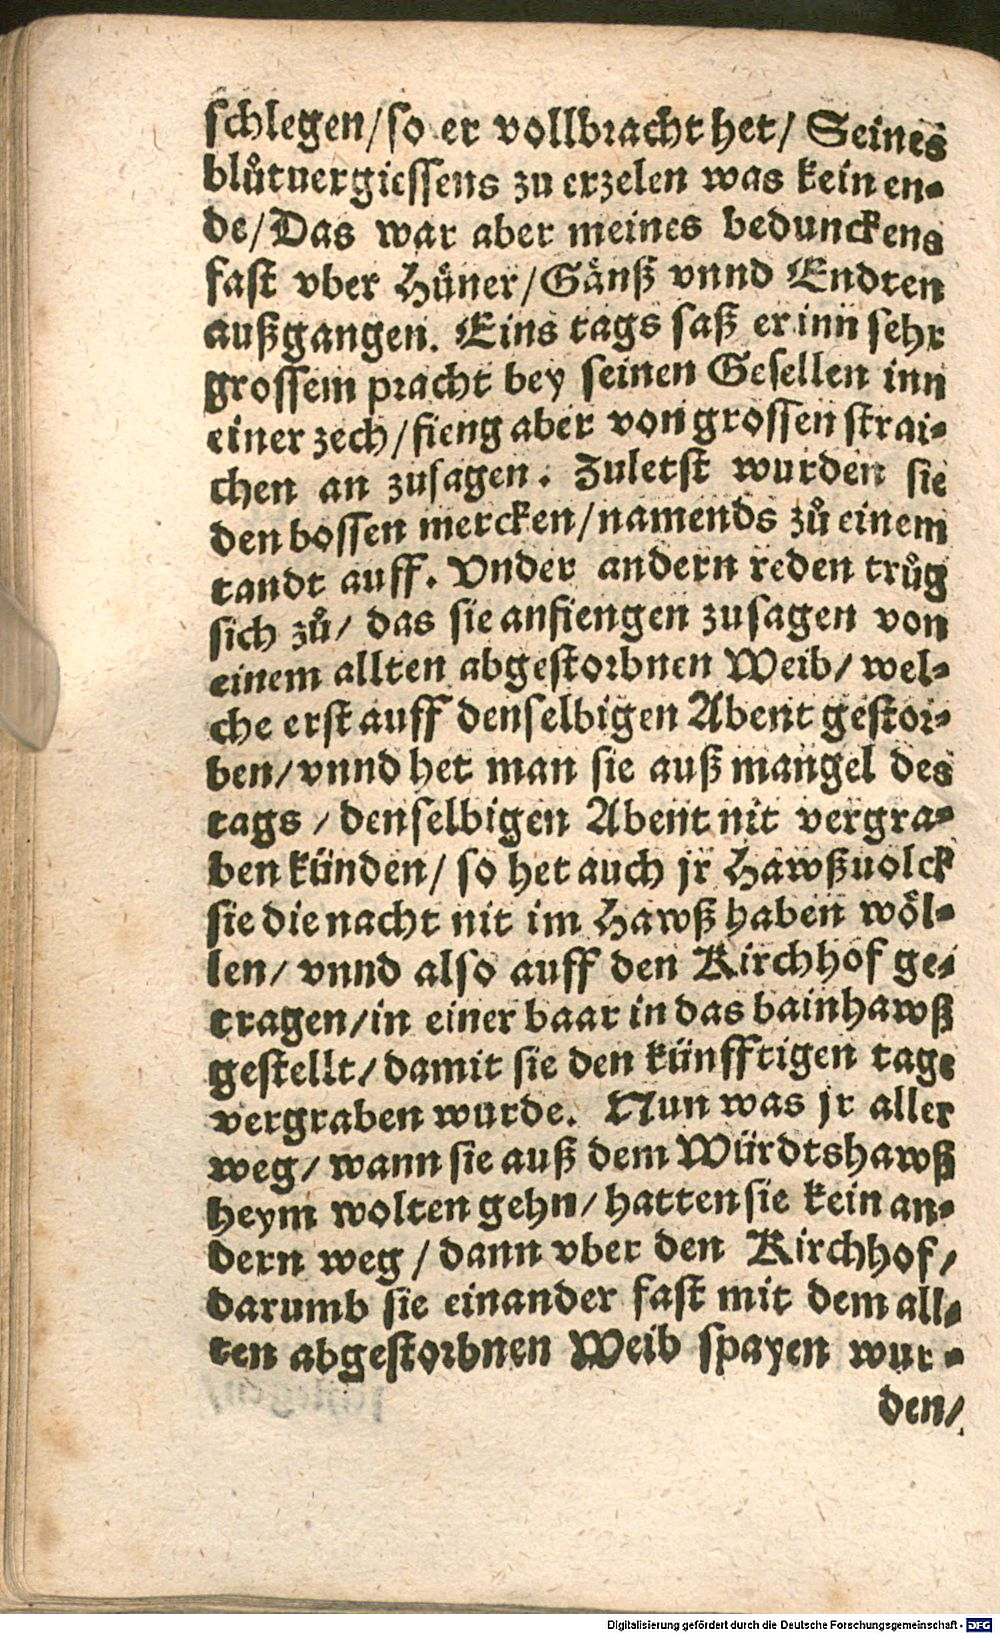 schlegen/so er vollbracht het/ Seines
blůtuergiessens zu erzelen was kein en-
de/Das war aber meines bedunckens
fast vber Hůner/Gänß vnnd Endten
außgangen. Eins tags saß er inn sehr
grossem pracht bey seinen Gesellen inn
einer zech/fieng aber von grossen strai-
chen an zusagen. Zuletst wurden sie
den bossen mercken/namends zů einem
tandt auff. Vnder andern reden trůg
sich zů/ das sie anfiengen zusagen von
einem allten abgestorbnen Weib/ wel-
che erst auff denselbigen Abent gestor-
ben/vnnd het man sie auß mangel des
tags / denselbigen Abent nit vergra-
ben künden/ so het auch jr Hawßuolck
sie die nacht nit im Hawß haben wöl-
len/ vnnd also auff den Kirchhof ge-
tragen/in einer baar in das bainhawß
gestellt/damit sie den künfftigen tage
vergraben wurde. Nun was jr aller
weg/ wann sie auß dem Würdtshawß
heym wolten gehn/ hatten sie kein an-
dern weg / dann vber den Kirchhof/
darumb sie einander fast mit dem all-
ten abgestorbnen Weib spayen wur-
den/
Digitalisierung gefördert durch die Deutsche Forschungsgemeinschaft - DFG